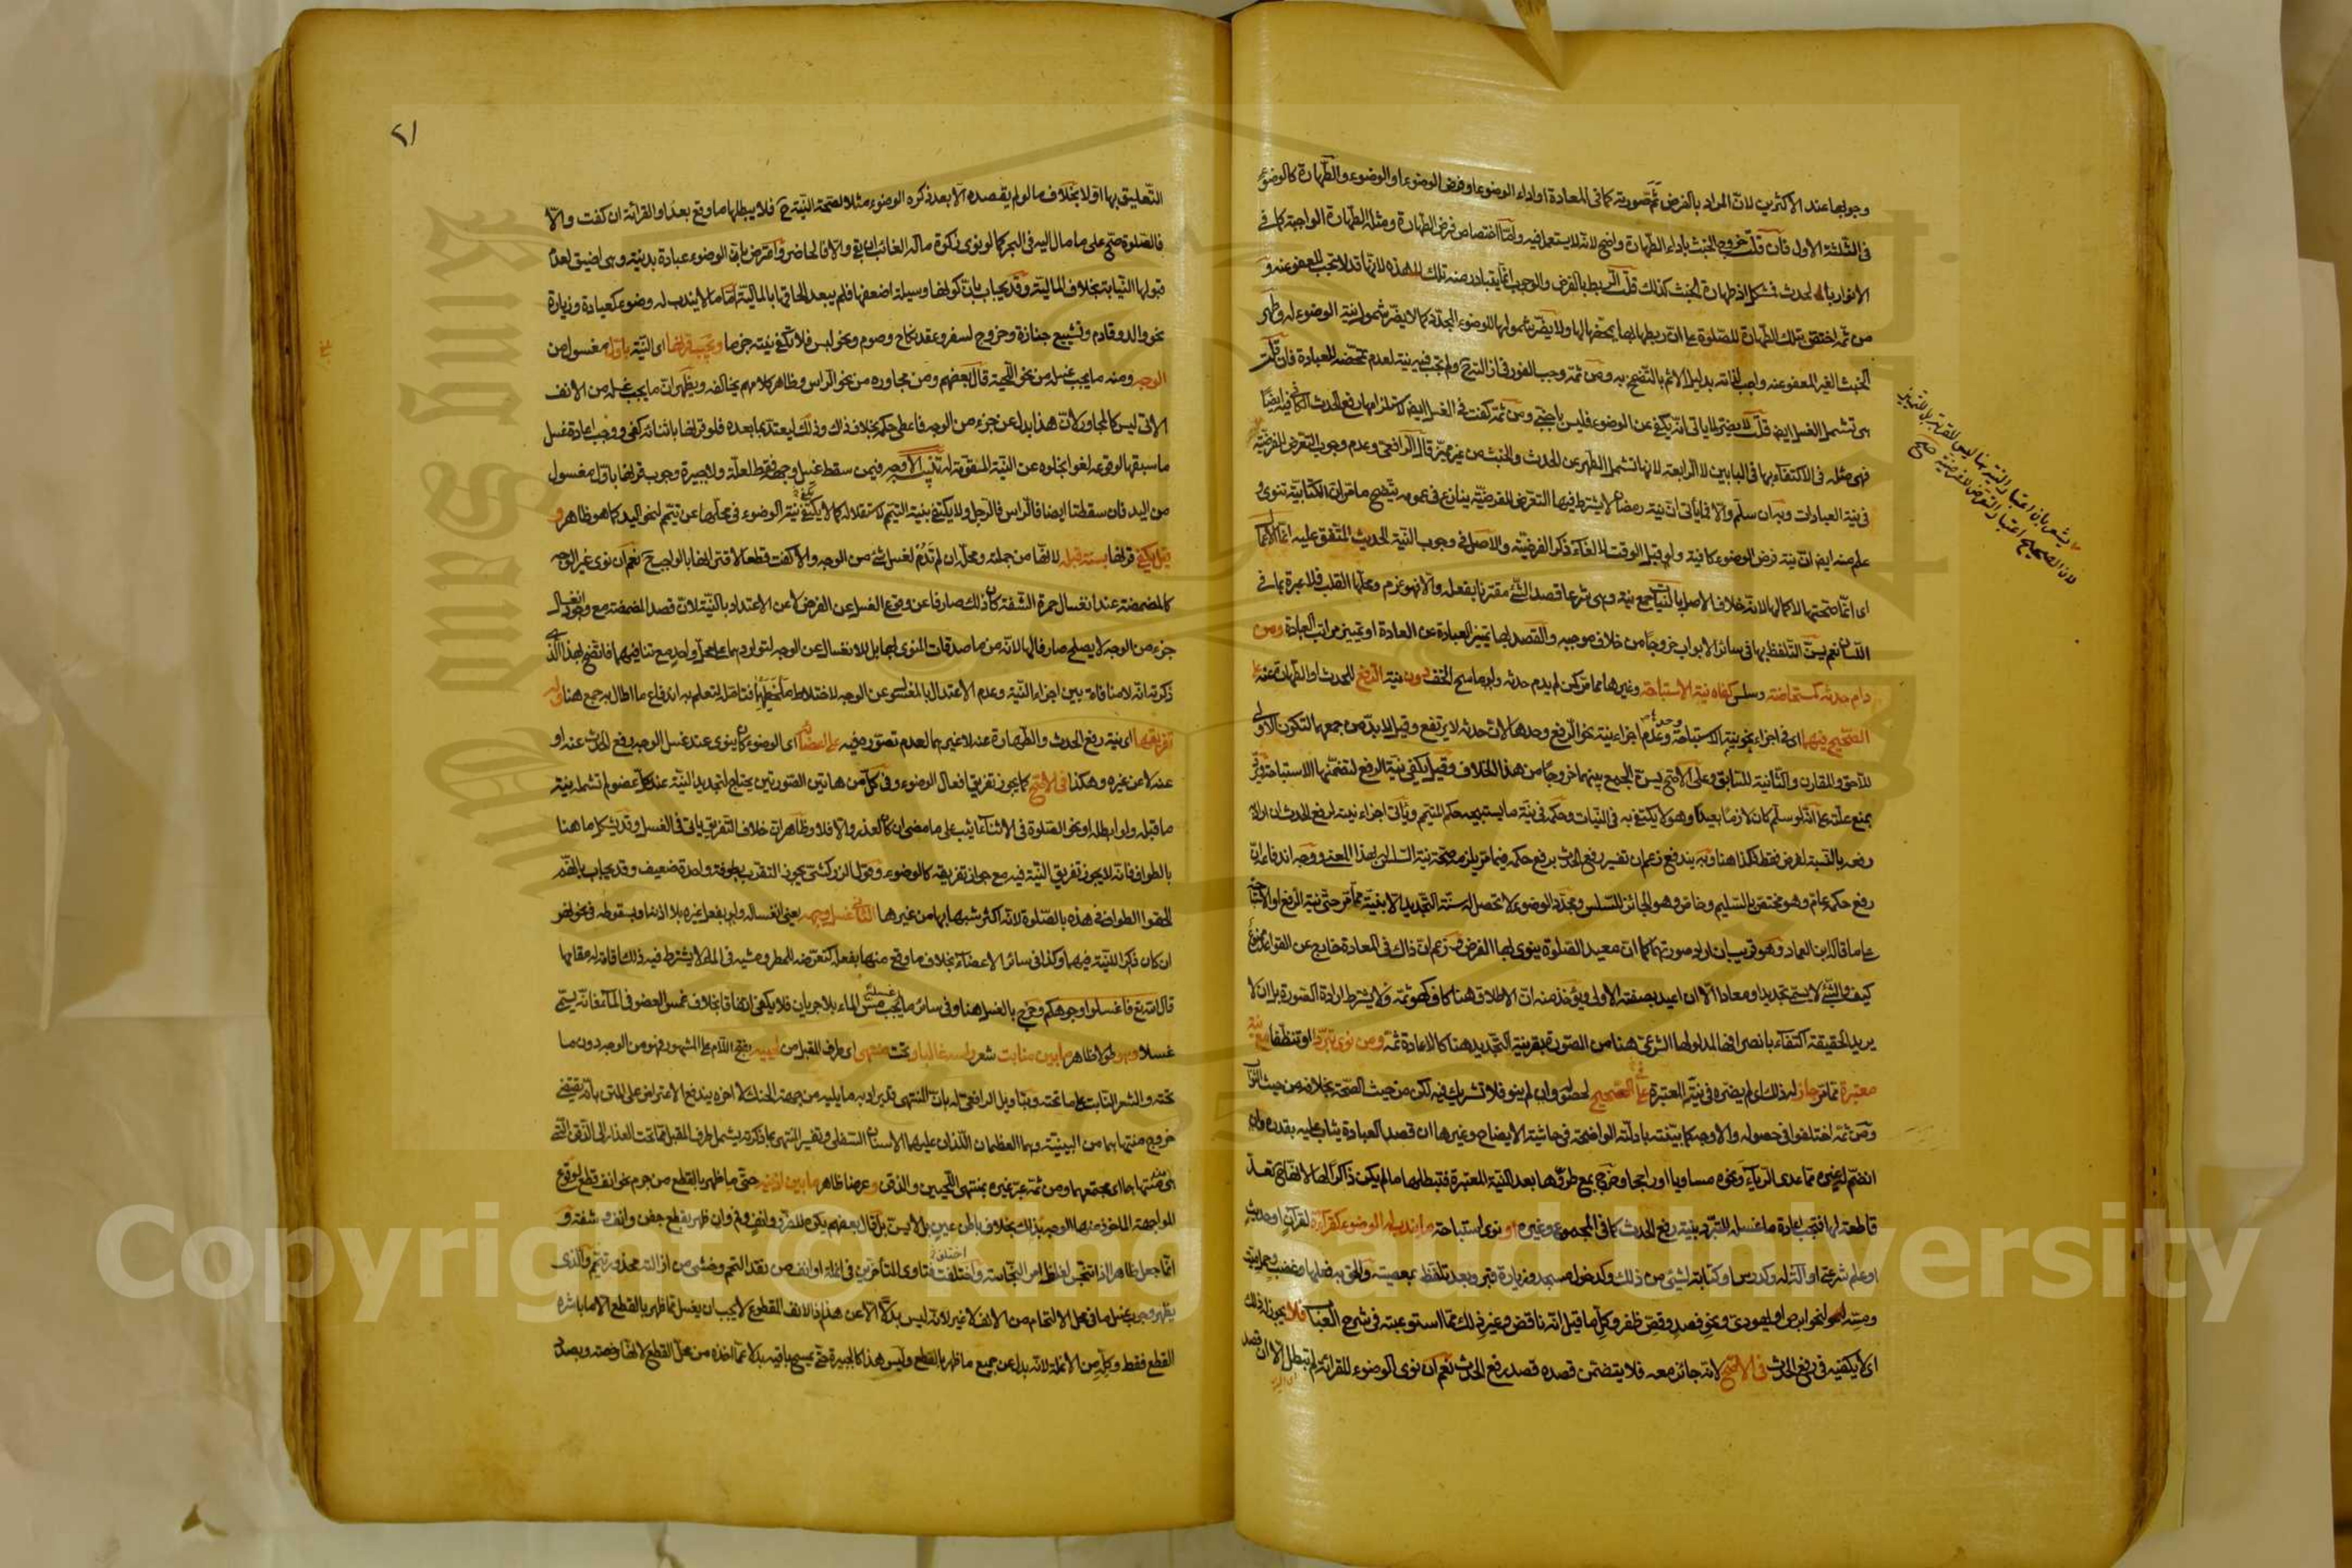 وجوبها عند الأكثرين لان المراد بالفرض ثم صورته كما في المعادة او اداء الوضوء او فرض الوضوء او الوضوء والطهارة كالوضوء
في الثلثة الاول فان قلت خروج الخبث باداء الطهارة واضح لانه لا يستعمل فيه واما اختصاص فرض الطهارة ومثله الطهارة الواجبة كما في
الانوار بالحدث فمشكل اذ طهارة الخبث كذلك قلت الربط بالفرض والوجوب انما يتبادر منه تلك لا هذه لانها قد لا تجب للعفو عنه و
من ثم اختص بتلك الطهارة للصلوة على ان ربطها بها يمحضها لها ولا يضر شمولها للوضوء المجدد كما لا يضر شمول نية الوضوء له وطهر
الخبث الغير المعفو عنه واجب لذاته بدليل الاثم بالتضمخ به ومن ثمة وجب الفور في ازالته ولم تجب فيه نية لعدم تمحضه للعبادة فان قلت
هي تشمل الغسل ايضا قلت لا يضر لما ياتي انه يكفي عن الوضوء فليس باجنبي ومن ثمة كفت في الغسل ايضا لاستلزامها رفع الحدث الكافي فيه ايضا
فهي مثله في الاكتفاء بها في البابين لا الرابعة لانها تشمل الطهر عن الحدث والخبث من غير مميز قال الرافعي وعدم وجوب التعرض للفرضية
في نية العبادات وبان سلم والا فما ياتي ان نية رمضان لا يشترط فيها التعرض للفرضية ينازع في عمومه يتضح ما مر ان الكتابية تنوي و
علم منه ايضا ان نية فرض الوضوء كافية ولو قبل الوقت لالغاء ذكر الفرضية والاصل في وجوب النية الحديث المتفق عليه انما الاعمال
اي انما صحتها لا كمالها لانه خلاف الاصل بالنيات جمع نية وهي شرعا قصد الشئ مقترنا بفعله والا فهو عزم ومحلها القلب فلا عبرة بما في
اللسان نعم يسن التلفظ بها في سائر الابواب خروجا من خلاف موجبه والقصد بها تمييز العبادة عن العادة او تمييز مراتب العبادة ومن
دام حدثه كمستحاضة وسلس كفاه نية الاستباحة وغيرها مما مر كمن لم يدم حدثه ولو ماسح الخف دون نية الرفع للحدث او الطهارة عنه على
الصحيح فيهما اي في اجزاء نحو نية الاستباحة وحدها وعدم اجزاء نية نحو الرفع وحدها لان حدثه لا يرتفع وقيل لا بد من جمعهما لتكون الاولى
للاحق والمقارن والثانية للسابق وعلى الاصح يسن الجمع بينهما خروجا من هذا الخلاف وقيل يكفي نية الرفع لتضمنها الاستباحة ويرد
بمنع علته على انه لو سلم كان لازما بعيدا وهو لا يكتفي به في النيات وحكمه في نية ما يستبيحه حكم المتيمم وياتي اجزاء نيته لرفع الحدث ان اراد
رفعه بالنسبة لفرض فقط فكذا هنا وبه يندفع زعم ان تفسير رفع الحدث برفع حكمه فيما مر يلزمه صحة نية السلس بهذا المعنى ووجه اندفاعه ان
رفع حكمه عام وهو مختص بالسليم وخاص وهو الجائز للسلس ومجدد الوضوء لا تحصل له سنة التجديد الا بنية مما مر حتى نية الرفع او الاستباحة
على ما قاله ابن العماد وهو قريب ان اراد صورتهما كما ان معيد الصلوة ينوي بها الفرض وزعم ان ذاك في المعادة خارج عن القواعد ممنوع
كيف والشئ لا يسمى تجديدا ومعادا الا ان اعيد بصفته الاولى ويؤخذ منه ان الاطلاق هنا كاف كهو ثمة ولا يشترط ارادة الصورة بل ان لا
يريد الحقيقة اكتفاء بانصرافها لمدلولها الشرعي هنا من الصورة بقرينة التجديد هنا كالاعادة ثمة ومن نوى تبردا او تنظفا مع نية
معتبرة مما مر جاز له ذلك اي لم يضره في نيته المعتبرة على الصحيح لحصوله وان لم ينو فلا تشريك فيه لكن من حيث الصحة بخلافه من حيث الثواب
ومن ثمة اختلفوا في حصوله والاوجه كما بينته بادلته الواضحة في حاشية الايضاح وغيرها ان قصد العبادة يثاب عليه بقدره وان
انضم له غيره مما عدى الرياء ونحوه مساويا او راجحا وخرج بمع طروها بعد النية المعتبرة فتبطلها ما لم يكن ذاكرا لها لانها ح تعد
قاطعة لها فتجب اعادة ما غسله للتبرد بنية رفع الحدث كما في المجموع وغيره او نوى استباحة ما يندب له الوضوء كقراءة لقرآن او حديث
او علم شرعي او آلة له وكدرس او كتابة لشئ من ذلك وكدخول مسجد وزيارة قبر وبعد تلفظ بمعصية والحق به فعلها وغضب وحمل ميت
ومسه لنحو ابرص او يهودي ونحو فصد وقص ظفر وكل ما قيل انه ناقض وغير ذلك مما استوعبته في شرح العباب فلا يجوز له ذلك
اي لا يكفيه في رفع الحدث في الاصح لانه جائز معه فلا يتضمن قصده قصد رفع الحدث نعم ان نوى الوضوء للقراءة لم تبطل الا ان قصد
يشعر بان اعتبار النية بها ليس للقربة بل للتمييز
لان الصحيح اعتبار التعرض للفرضية صح
٢١
التعليق بها اولا بخلاف ما لو لم يقصده الا بعد ذكره الوضوء مثلا لصحة النية ح فلا يبطلها ما وقع بعد او القرائة ان كفت والا
فالصلوة صح على ما مال اليه في البحر كما لو نوى زكوة ماله الغائب ان بقي والا فالحاضر واعترض بان الوضوء عبادة بدنية وهي اضيق لعدم
قبولها النيابة بخلاف المالية وقد يجاب بان كونها وسيلة اضعفها فلم يبعد الحاقها بالمالية اما ما لا يندب له وضوء كعيادة وزيارة
نحو والد وقادم وتشييع جنازة وخروج لسفر وعقد نكاح وصوم ونحو لبس فلا تكفي نيته جزما ويجب قرنها اي النية باول مغسول من
الوجه ومنه ما يجب غسله من نحو اللحية قال بعضهم ومن مجاوره من نحو الراس وظاهر كلامهم يخالفه ويظهر ان ما يجب غسله من الانف
الاتي ليس كالمجاور لان هذا بدل عن جزء من الوجه فاعطي حكمه بخلاف ذلك وذلك ليعتد بما بعده فلو قرنها باثنائه كفى ووجب اعادة غسل
ما سبقها لوقوعه لغوا بخلوه عن النية المقومة له تنبيه الاوجه فيمن سقط غسل وجهه فقط لعلة ولا جبيرة وجوب قرنها باول مغسول
من اليد فان سقطتا ايضا فالراس فالرجل ولا يكتفي بنية التيمم لاستقلاله كما لا يكتفي نية الوضوء في محلها عن تيمم لنحو اليد كما هو ظاهر و
قيل يكفي قرنها بسنة قبله لانها من جملته ومحله ان لم تدم لغسل شئ من الوجه والا كفت قطعا لاقترانها بالواجب ح نعم ان نوى غير الوجه
كالمضمضة عند انغسال حمرة الشفة كان ذلك صارفا عن وقوع الغسل عن الفرض لا عن الاعتداد بالنية لان قصد المضمضة مع وجود انغسال
جزء من الوجه لا يصلح صارفا لها لانه من ما صدقات المنوي بها بل للانغسال عن الوجه لتواردهما على محل واحد مع تنافيهما فاتضح بهذا الذي
ذكرته انه لا منافاة بين اجزاء النية وعدم الاعتداد بالمغسول عن الوجه لاختلاط ملحظهما فتامله لتعلم به اندفاع ما اطال به جمع هنا وله
تفريقها اي نية رفع الحدث والطهارة عنه لا غيرهما لعدم تصوره فيه على اعضائه اي الوضوء كان ينوي عند غسل الوجه رفع الحدث عنه او
عنه لا عن غيره وهكذا في الاصح كما يجوز تفريق افعال الوضوء وفي كل من هاتين الصورتين يحتاج لتجديد النية عند كل عضو لم تشمله نية
ما قبله ولو ابطله او نحو الصلوة في الاثناء اثيب على ما مضى ان كان لعذر والا فلا وظاهر ان خلاف التفريق ياتي في الغسل وقد يشكل ما هنا
بالطواف فانه لا يجوز تفريق النية فيه مع جواز تفريقه كالوضوء وقول الزركشي يجوز التقرب بطوفة واحدة ضعيف وقد يجاب بانهم
الحقوا الطواف في هذه بالصلوة لانه اكثر شبها بها من غيرها الثاني غسل وجهه يعني انغساله ولو بفعل غيره بلا اذنه او بسقوطه في نحو نهر
ان كان ذاكرا للنية فيهما وكذا في سائر الاعضاء بخلاف ما وقع منها بفعله كتعرضه للمطر ومشيه في الماء لا يشترط فيه ذلك اقامة له مقامها
قال الله تع فاغسلوا وجوهكم وخرج بالغسل هنا وفي سائر ما يجب غسله مس الماء بلا جريان فلا يكفي اتفاقا بخلاف غمس العضو في الماء فانه يسمى
غسلا وهو طولا ظاهر ما بين منابت شعر راسه غالبا وتحت منتهى اي طرف المقبل من لحييه بفتح اللام على المشهور فهو من الوجه دون ما
تحته والشعر النابت على ما تحته وبتاويل الرافعي له بان المنتهى قد يراد به ما يليه من جهة الحنك لا اخره يندفع الاعتراض على المتن بانه يقتضي
خروج منتهاهما من البينية وهما العظمان اللذان عليهما الاسنان السفلى وتفسير المنتهى بما ذكرته يشمل طرف المقبل مما تحت العذار الى الذقن التي
هي منتهاهما اي مجتمعهما ومن ثمة عبر غيره بمنتهى اللحيين والذقن وعرضا ظاهر ما بين اذنيه حتى ما ظهر بالقطع من جرم نحو انف قطع لوقوع
المواجهة الماخوذ منها الوجه بذلك بخلاف باطن عين بل لا يسن بل قال بعضهم يكره للضرر وانف وفم وان ظهر بقطع جفن وانف وشفة و
انما جعل ظاهرا اذا تنجس لغلظ امر النجاسة واختلفت فتاوى المتاخرين في انملة او انف من نقد التحم وخشي من ازالته محذور تيمم والذي
يظهر وجوب غسل ما في محل الالتحام من الانف لا غير لانه ليس بدلا الا عن هذا اذ الانف المقطوع لا يجب ان يغسل مما ظهر بالقطع الا ما باشره
القطع فقط وكل من الانملة لانه بدل عن جميع ما ظهر بالقطع وليس هذا كالجبيرة حتى يمسح باقيه بدلا عما اخذه من محل القطع لانها رخصة وبصدد